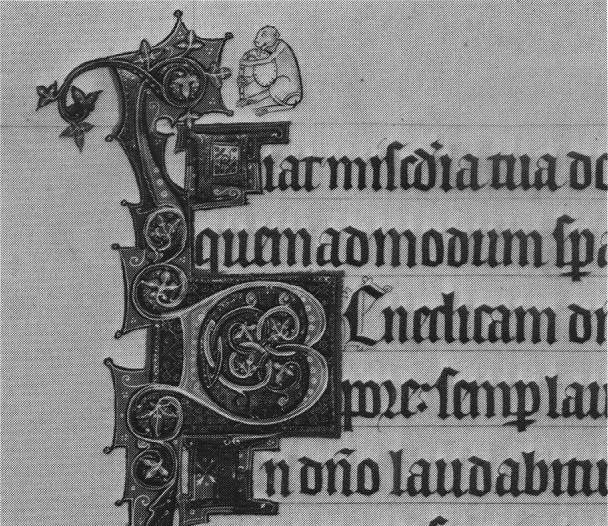 Fiat mis̄cdia tua do
quemadmodum sꝑa
BEnedicam dn
pore: semꝑ lau
In dño laudabitu